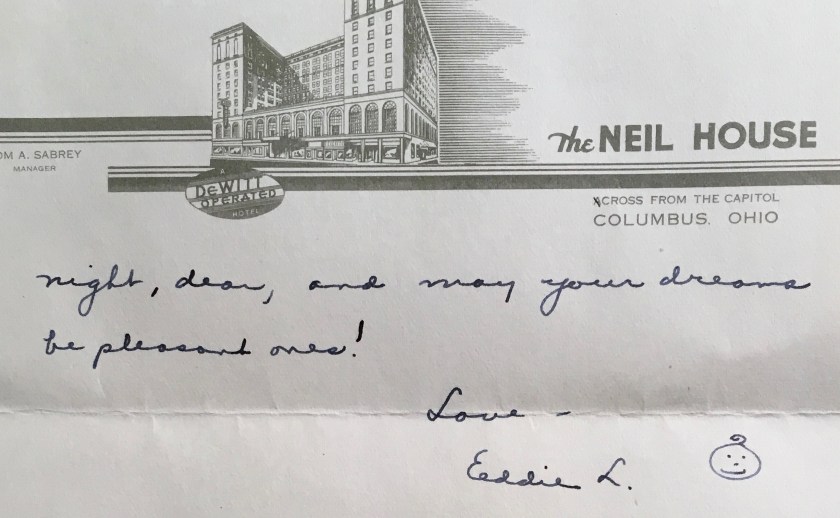 The NEIL HOUSE
OM A. SABREY
MANAGER
A
DEWITT
OPERATED
HOTEL
ACROSS FROM THE CAPITOL
COLUMBUS, OHIO
night, dear, and may your dreams
be pleasant ones!
Love -
Eddie L.